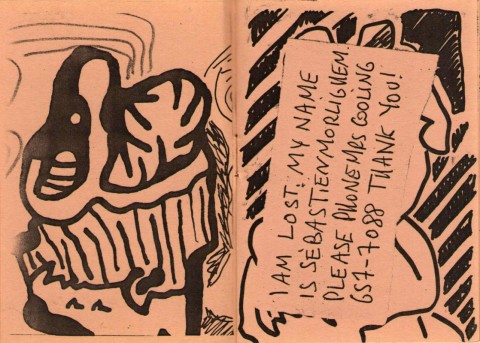 I AM LOST! MY NAME
IS SEBASTIEN MORLIGHEM
PLEASE PHONE MRS GOOLING
657-7088 THANK YOU!